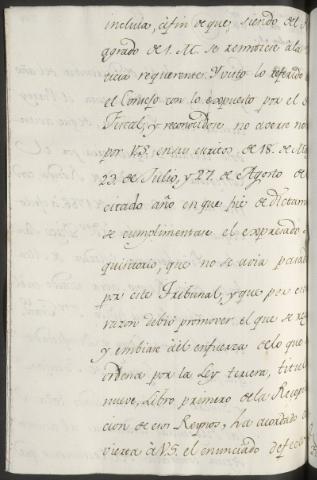 incluia, afin de que, siendo del R
agrado de S. M. se remitiese à la
ticia requirente. Y visto lo referido
el Consejo con lo expuesto por el S
Fiscal, y reconocidose, no averse
por V.S. en sus escritos de 18. de
23. de Julio, y 27. de Agosto de
citado año en que fue de Dictam
se cumplimentase el expresado
quisitorio, que no se avia
por este Tribunal, y que por
razon debió promover el que se
y embiase àèl en fuerza de lo que
ordena por la Ley tercera, titu
nueve, Libro primero de la Recop
cion de esos Reynos, ha acordado
vierta à V.S. el enunciado defec